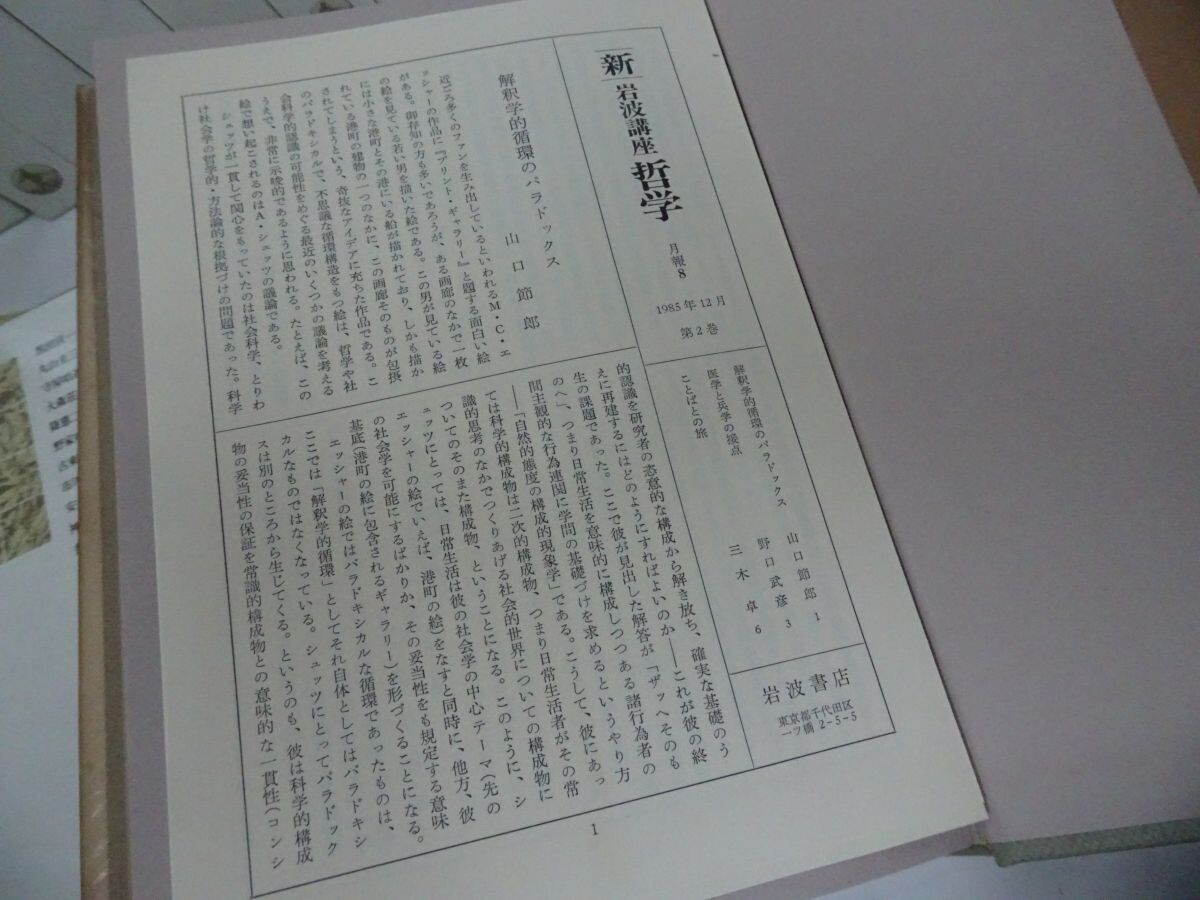 新 岩波講座 哲学
月報8
1985年12月
第2巻
解釈学的循環のパラドックス 山口節郎 1
医学と兵学の接点 野口武彦 3
ことばとの旅 三木卓 6
岩波書店
東京都千代田区
一ツ橋2-5-5
解釈学的循環のパラドックス
山口節郎
近ごろ多くのファンを生み出しているといわれるM・C・エ
ッシャーの作品に『プリント・ギャラリー』と題する面白い絵
がある。御存知の方も多いであろうが、ある画廊のなかで一枚
の絵を見ている若い男を描いた絵である。この男が見ている絵
には小さな港町とその港にいる船が描かれており、しかも描か
れている港町の建物の一つのなかに、この画廊そのものが包摂
されてしまうという、奇抜なアイデアに充ちた作品である。こ
のパラドキシカルで、不思議な循環構造をもつ絵は、哲学や社
会科学的認識の可能性をめぐる最近のいくつかの議論を考える
うえで、非常に示唆的であるように思われる。たとえば、この
絵で想い起こされるのはA・シュッツの議論である。
シュッツが一貫して関心をもっていたのは社会科学、とりわ
け社会学の哲学的・方法論的な根拠づけの問題であった。科学
的認識を研究者の恣意的な構成から解き放ち、確実な基礎のう
えに再建するにはどのようにすればよいのか――これが彼の終
生の課題であった。ここで彼が見出した解答が「ザッヘそのも
のへ」、つまり日常生活を意味的に構成しつつある諸行為者の
間主観的な行為連関に学問の基礎づけを求めるというやり方
――「自然的態度の構成的現象学」である。こうして、彼にあっ
ては科学的構成物は二次的構成物、つまり日常生活者がその常
識的思考のなかでつくりあげる社会的世界についての構成物に
ついてのそのまた構成物、ということになる。このように、シ
ュッツにとっては、日常生活は彼の社会学の中心テーマ(先の
エッシャーの絵でいえば、港町の絵)をなすと同時に、他方、彼
の社会学を可能にするばかりか、その妥当性をも規定する意味
基底(港町の絵に包含されるギャラリー)を形づくることになる。
エッシャーの絵ではパラドキシカルな循環であったものは、
ここでは「解釈学的循環」としてそれ自体としてはパラドキシ
カルなものではなくなっている。シュッツにとってパラドック
スは別のところから生じてくる。というのも、彼は科学的構成
物の妥当性の保証を常識的構成物との意味的な一貫性(コンシ
1